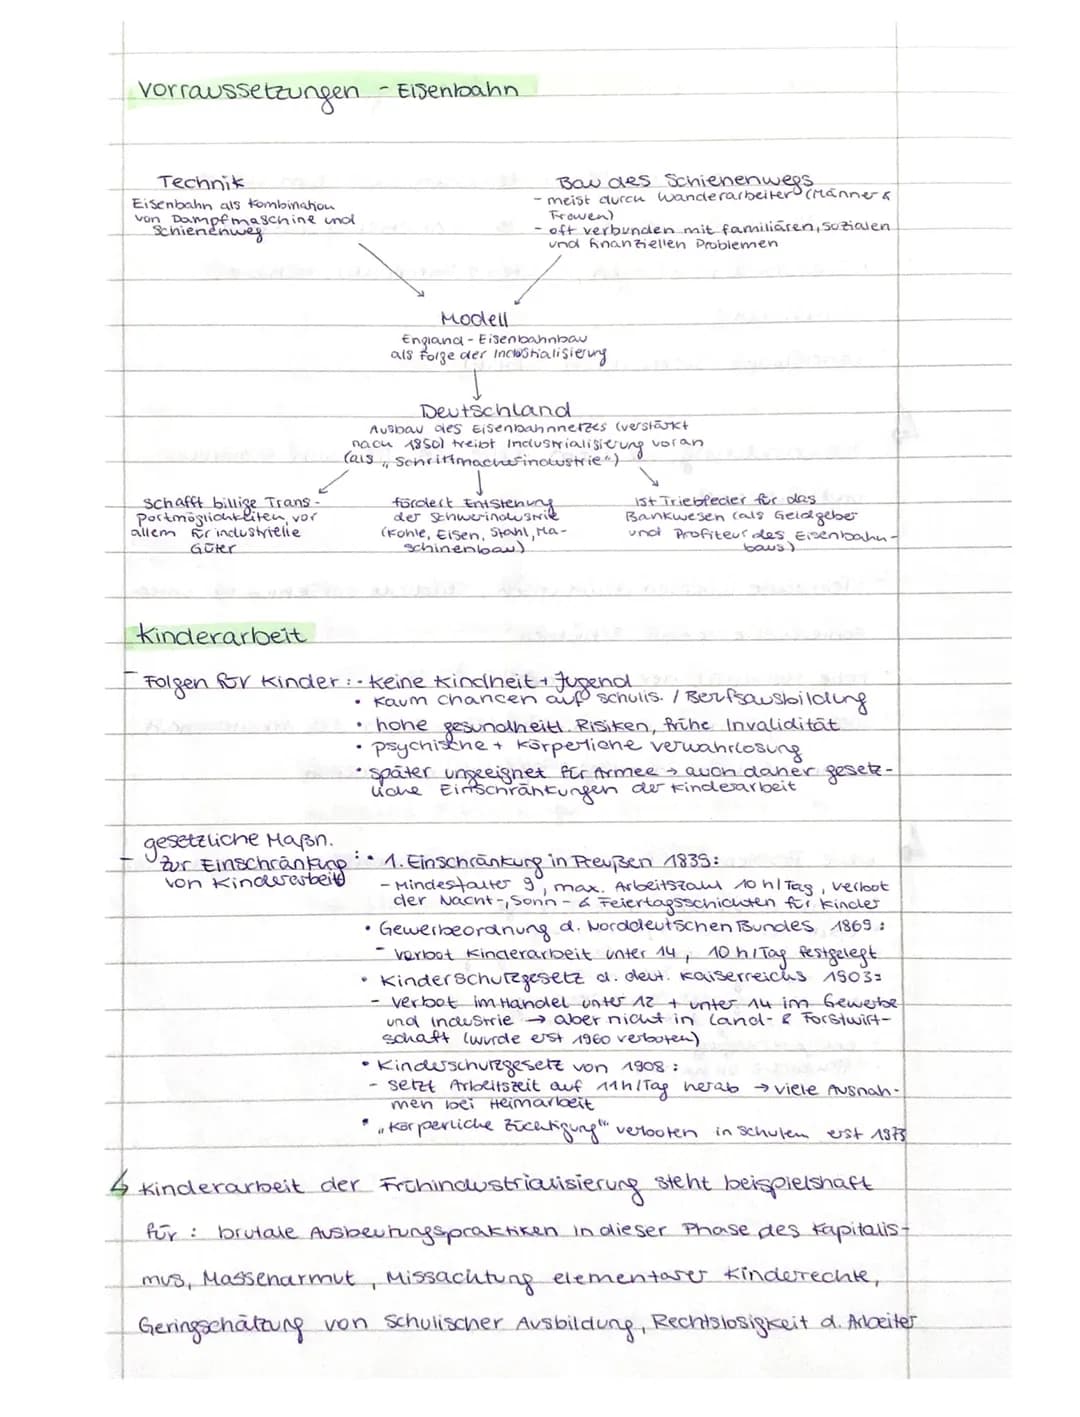 Vorraussetzungen - Eisenbahn
Technik
Eisenbahn als Kombination
von Dampfmaschine und
Schienenweg
Bau des Schienenwegs
- meist durch Wanderarbeiter (Männer &
Frauen)
- oft verbunden mit familiären, sozialen
und finanziellen Problemen
Modell
England - Eisenbahnbau
als Folge der Industrialisierung
Deutschland
Ausbau des Eisenbahnnetzes (verstärkt
nach 1850) treibt Industrialisierung voran
(als „Schrittmacherindustrie")
schafft billige Trans-
portmöglichkeiten, vor
allem für industrielle
Güter
fördert Entstehung
der Schwerindustrie
(Kohle, Eisen, Stahl, Ma-
schinenbau)
ist Triebfeder für das
Bankwesen (als Geldgeber
und Profiteur des Eisenbahn-
baus)
Kinderarbeit
- Folgen für Kinder : • keine Kindheit + Jugend
• kaum chancen auf schulis. / Berfsausbildung
• hohe gesundheitl. Risiken, frühe Invalidität
• psychische + körperliche verwahrlosung
• später ungeeignet für Armee → auch daher gesetz-
liche Einschränkungen der Kinderarbeit
gesetzliche Maßn.
- zur Einschränkung : • 1. Einschränkung in Preußen 1839:
von Kinderarbeit
- Mindestalter 9, max. Arbeitszahl 10 h/Tag, verbot
der Nacht-, Sonn- & Feiertagsschichten für Kinder
• Gewerbeordnung d. Norddeutschen Bundes 1869 :
- verbot Kinderarbeit unter 14, 10 h/Tag festgelegt
• Kinderschutzgesetz d. deut. Kaiserreichs 1903:
- verbot im Handel unter 12 + unter 14 im Gewerbe
und Industrie → aber nicht in Land- & Forstwirt-
schaft (wurde erst 1960 verboten)
• Kinderschutzgesetz von 1908 :
- setzt Arbeitszeit auf 11h/Tag herab → viele Ausnah-
men bei Heimarbeit
• „Körperliche Züchtigung" verboten in Schulen erst 1973
↳ Kinderarbeit der Frühindustrialisierung steht beispielshaft
für : brutale Ausbeutungspraktiken in dieser Phase des Kapitalis-
mus, Massenarmut, Missachtung elementarer Kinderrechte,
Geringschätzung von schulischer Ausbildung, Rechtslosigkeit d. Arbeiter